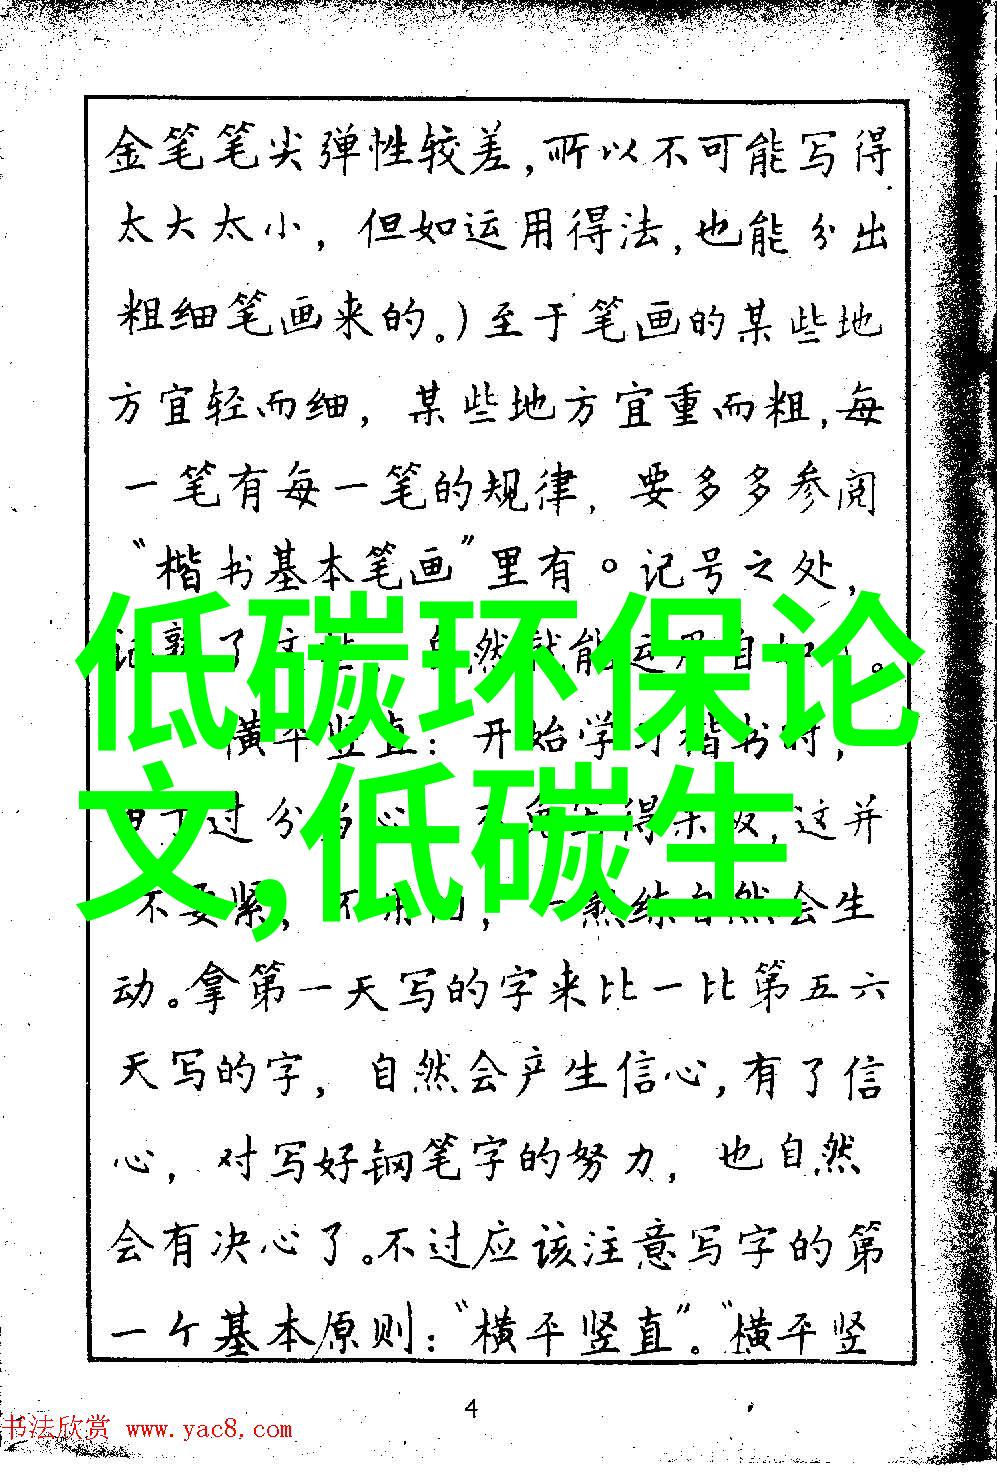 金笔笔尖弹性较差,所以不可能写得
太大太小,但如运用得法,也能分出
粗细笔画来的。)至于笔画的某些地
方宜轻而细,某些地方宜重而粗,每
一笔有每一笔的规律,要多多参阅
“楷书基本笔画”里有。记号之处,
低碳环保论
横平竖直:开始学习楷书时,
文,低碳生
动。拿第一天写的字来比一比第五六
天写的字,自然会产生信心,有了信
心,对写好钢笔字的努力,也自然
会有决心了。不过应该注意写字的第
一个基本原则:“横平竖直”。“横平竖
4
书法欣赏 www.yac8.com